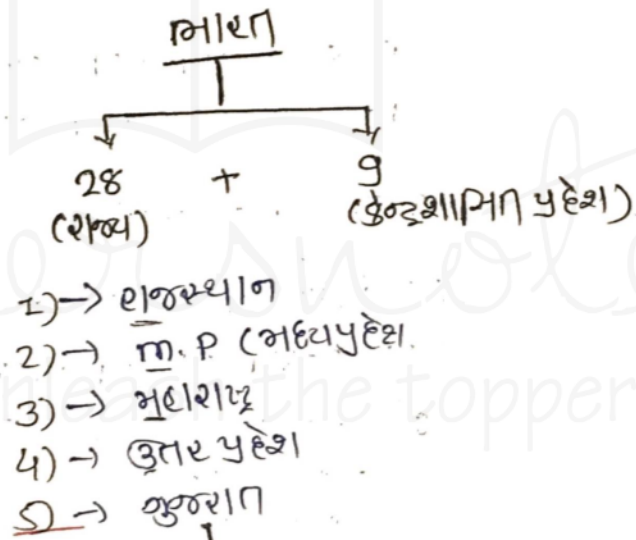 ભારત
28 + 9
(રાજ્ય) (કેન્દ્રશાસિત પ્રદેશ)
1)→ રાજસ્થાન
2)→ M.P (મધ્યપ્રદેશ
3)→ મહારાષ્ટ્ર
4)→ ઉત્તર પ્રદેશ
5)→ ગુજરાત
the topper